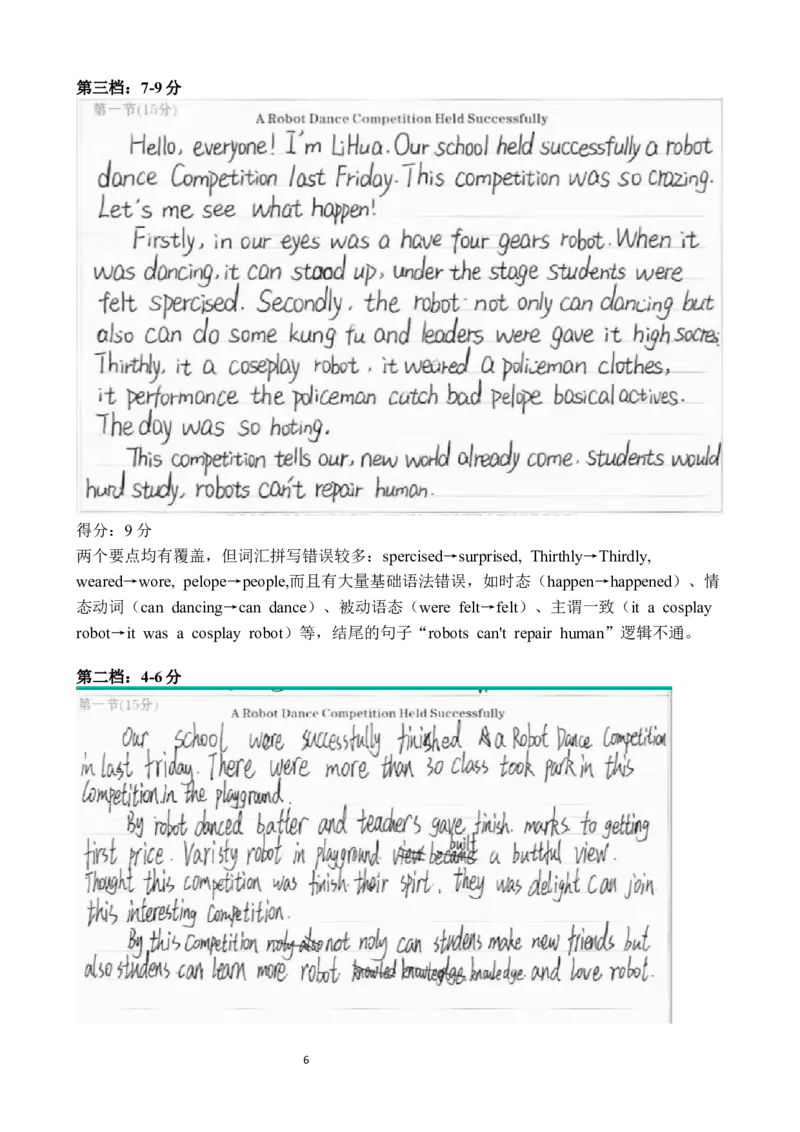 第三档：7-9分
第一节(15分)
A Robot Dance Competition Held Successfully
Hello, everyone! I'm LiHua. Our school held successfully a robot
dance Competition last Friday. This competition was so crazing.
Let's me see what happen!
Firstly, in our eyes was a have four gears robot. When it
was dancing, it can stood up, under the stage students were
felt spercised. Secondly, the robot not only can dancing but
also can do some kung fu and leaders were gave it high socres.
Thirthly, it a coseplay robot, it weared a policeman clothes,
it performance the policeman cutch bad pelope basical actives.
The day was so hoting.
This competition tells our, new world already come. students would
hurd study, robots can't repair human.
得分：9分
两个要点均有覆盖，但词汇拼写错误较多：spercised→surprised, Thirthly→Thirdly,
weared→wore, pelope→people,而且有大量基础语法错误，如时态（happen→happened）、情
态动词（can dancing→can dance）、被动语态（were felt→felt）、主谓一致（it a cosplay
robot→it was a cosplay robot）等，结尾的句子“robots can't repair human”逻辑不通。
第二档：4-6分
第一节(15分)
A Robot Dance Competition Held Successfully
Our school were successfully finished a Robot Dance Competition
in last friday. There were more than 30 class took park in this
Competition.in the playground.
By robot danced batter and teachers gave finish. marks. to getting
first price. Varisty robot in playground built a buttful view.
Thought this competition was finish their spirt, they was delight can join
this interesting Competition.
By this Competition not noly can studens make new friends but
also studens can learn more robot knawledge and love robot.
6